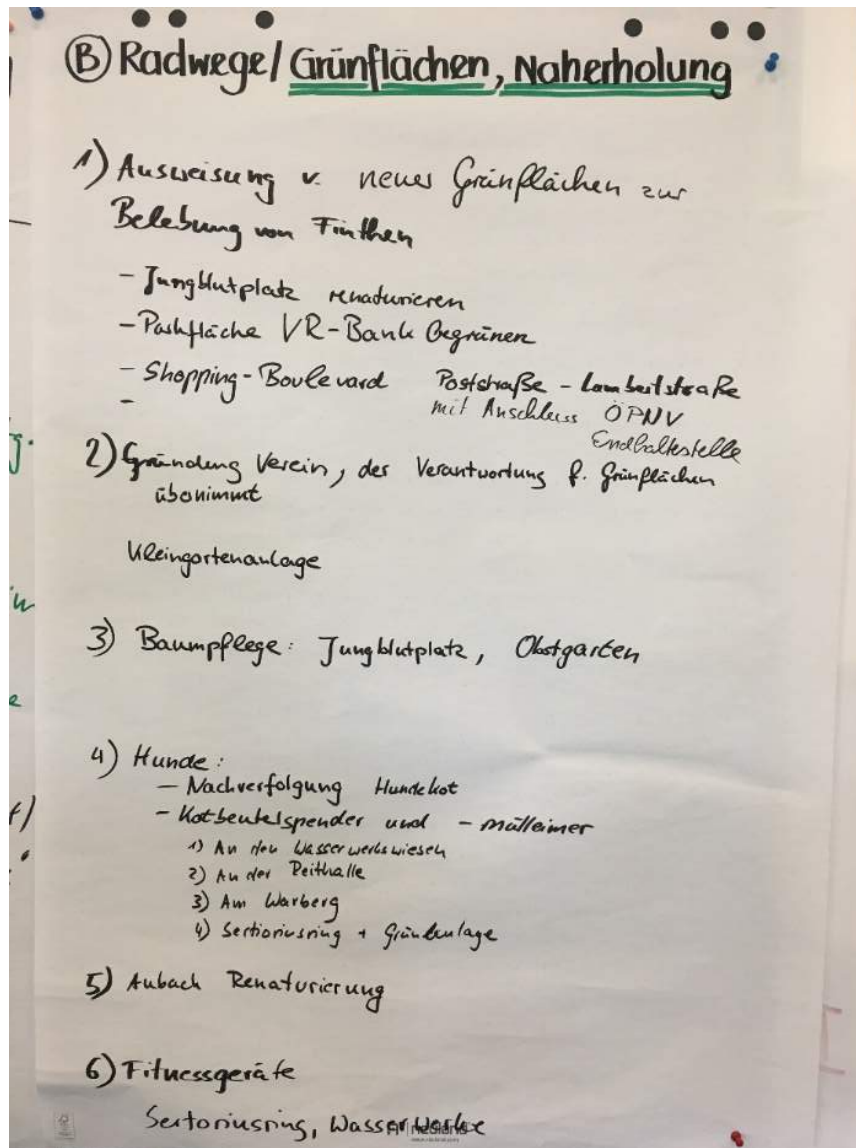 Ⓑ Radwege/Grünflächen, Naherholung
1) Ausweisung v. neuer Grünflächen zur
Belebung von Finthen
- Jungblutplatz renaturieren
- Parkfläche VR-Bank begrünen
- Shopping-Boulevard Poststraße - Lambertstraße
-
mit Anschluss ÖPNV
Endhaltestelle
2) Gründung Verein, der Verantwortung f. Grünflächen
übernimmt
Kleingartenanlage
3) Baumpflege: Jungblutplatz, Obstgarten
4) Hunde:
- Nachverfolgung Hundekot
- Kotbeutelspender und - mülleimer
1) An den Wasserwerkswiesen
2) An der Reithalle
3) Am Warberg
4) Sertoriusring + Grünanlage
5) Aubach Renaturierung
6) Fitnessgeräte
Sertoriusring, Wasserwerke